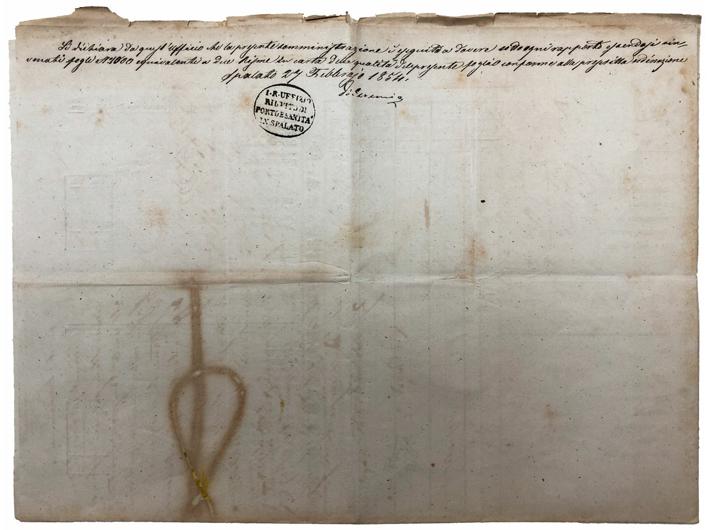 Si dichiara da quest'Ufficio che la presente somministrazione è eseguita a dovere ed in ogni rapporto essendosi rin-
fogli N. 1000 equivalenti a due Risme in carta d'una qualità del presente foglio conforme alla
Spalato 27 Febbrajo 1854.
I. R. UFFIZIO
PORTO E SANITA'
IN SPALATO